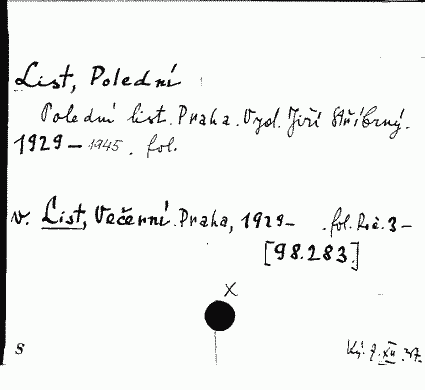 List, Polední
Polední list. Praha. Vyd. Jiří Stříbrný.
1929 – 1945. fol.
v. List, Večerní. Praha, 1929 – . fol. Roč. 3 –
[98.283.]
x
s
XII. 37.